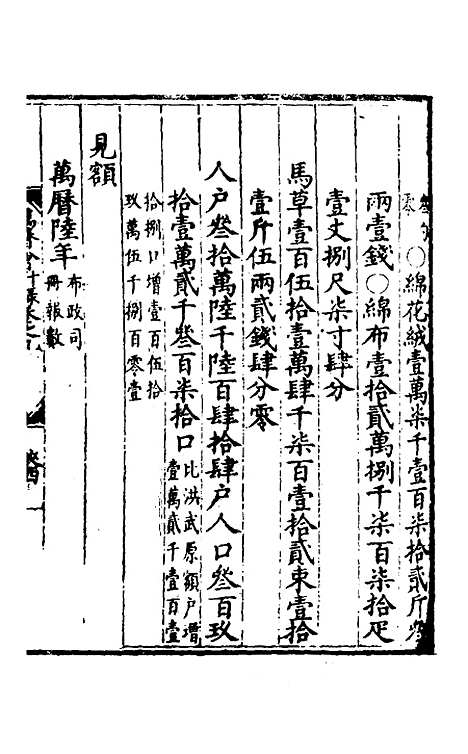 零○綿花絨壹萬柒千壹百柒拾貳斤
兩壹錢○綿布壹拾貳萬捌千柒百柒拾疋
壹丈捌尺柒寸肆分
馬草壹百伍拾壹萬肆千柒百壹拾貳束壹拾
壹斤伍兩貳錢肆分零
人戶叄拾萬陸千陸百肆拾肆戶人口叄百玖
拾壹萬貳千叄百柒拾口比洪武原額戶增
壹萬貳千壹百壹
拾捌口增壹百伍拾
玖萬伍千捌百零壹
見額
萬曆陸年布政司
冊報數
萬曆會計錄卷之
陝西